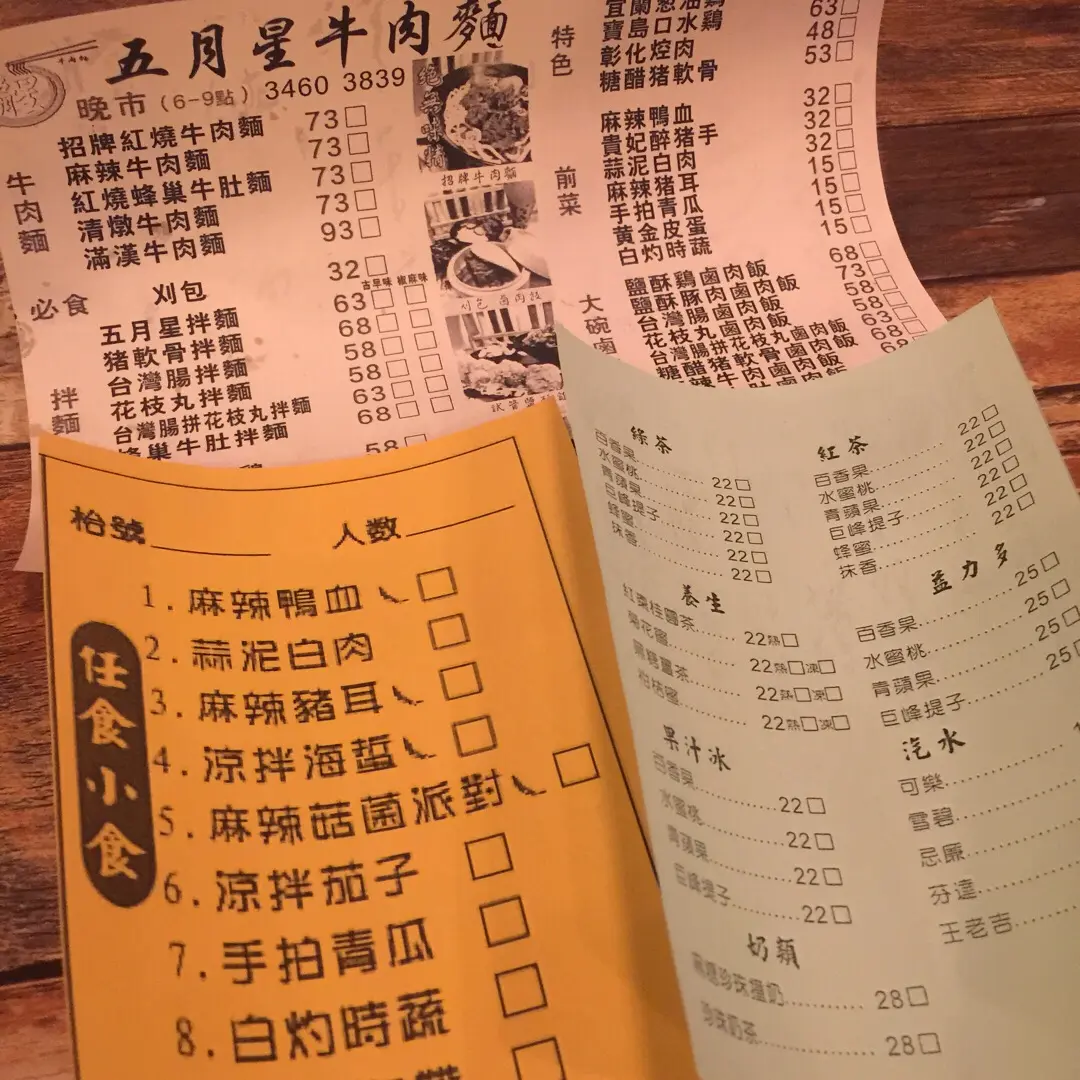 五月星牛肉麵
晚市（6-9點）3460 3839
牛肉麵
招牌紅燒牛肉麵 73□
麻辣牛肉麵 73□
紅燒蜂巢牛肚麵 73□
清燉牛肉麵 73□
滿漢牛肉麵 93□
必食
刈包 32□
古早味 椒麻味
拌麵
五月星拌麵 63□□
豬軟骨拌麵 68□□
台灣腸拌麵 58□□
花枝丸拌麵 58□□
台灣腸拼花枝丸拌麵 63□□
蜂巢牛肚拌麵 68□□
58□
招牌牛肉麵
刈包
特色
寶島口水雞 63□
彰化焢肉 48□
糖醋豬軟骨 53□
前菜
麻辣鴨血 32□
貴妃醉豬手 32□
蒜泥白肉 32□
麻辣豬耳 15□
手拍青瓜 15□
黃金皮蛋 15□
白灼時蔬 15□
大碗鹵
鹽酥鷄鹵肉飯 68□
鹽酥豚肉鹵肉飯 73□
台灣腸鹵肉飯 58□
花枝丸鹵肉飯 58□
台灣腸拼花枝丸鹵肉飯 63□
糖醋豬軟骨鹵肉飯 68□
枱號
人数
任食小食
1.麻辣鴨血 □
2.蒜泥白肉 □
3.麻辣豬耳 □
4.涼拌海蜇 □
5.麻辣菇菌派對 □
6.涼拌茄子 □
7.手拍青瓜 □
8.白灼時蔬 □
綠茶
百香果 22□
水蜜桃 22□
青蘋果 22□
巨峰提子 22□
蜂蜜 22□
抹香 22□
養生
紅棗桂圓茶 22熱□
菊花蜜 22熱□凍□
黑糖薑茶 22熱□凍□
柑桔蜜 22熱□凍□
果汁冰
百香果 22□
水蜜桃 22□
青蘋果 22□
巨峰提子 22□
奶類
黑糖珍珠撞奶 28□
珍珠奶茶 28□
紅茶
百香果 22□
水蜜桃 22□
青蘋果 22□
巨峰提子 22□
蜂蜜 22□
抹香
益力多
百香果 25□
水蜜桃 25□
青蘋果 25□
巨峰提子 25
汽水
可樂
雪碧
忌廉
芬達
王老吉